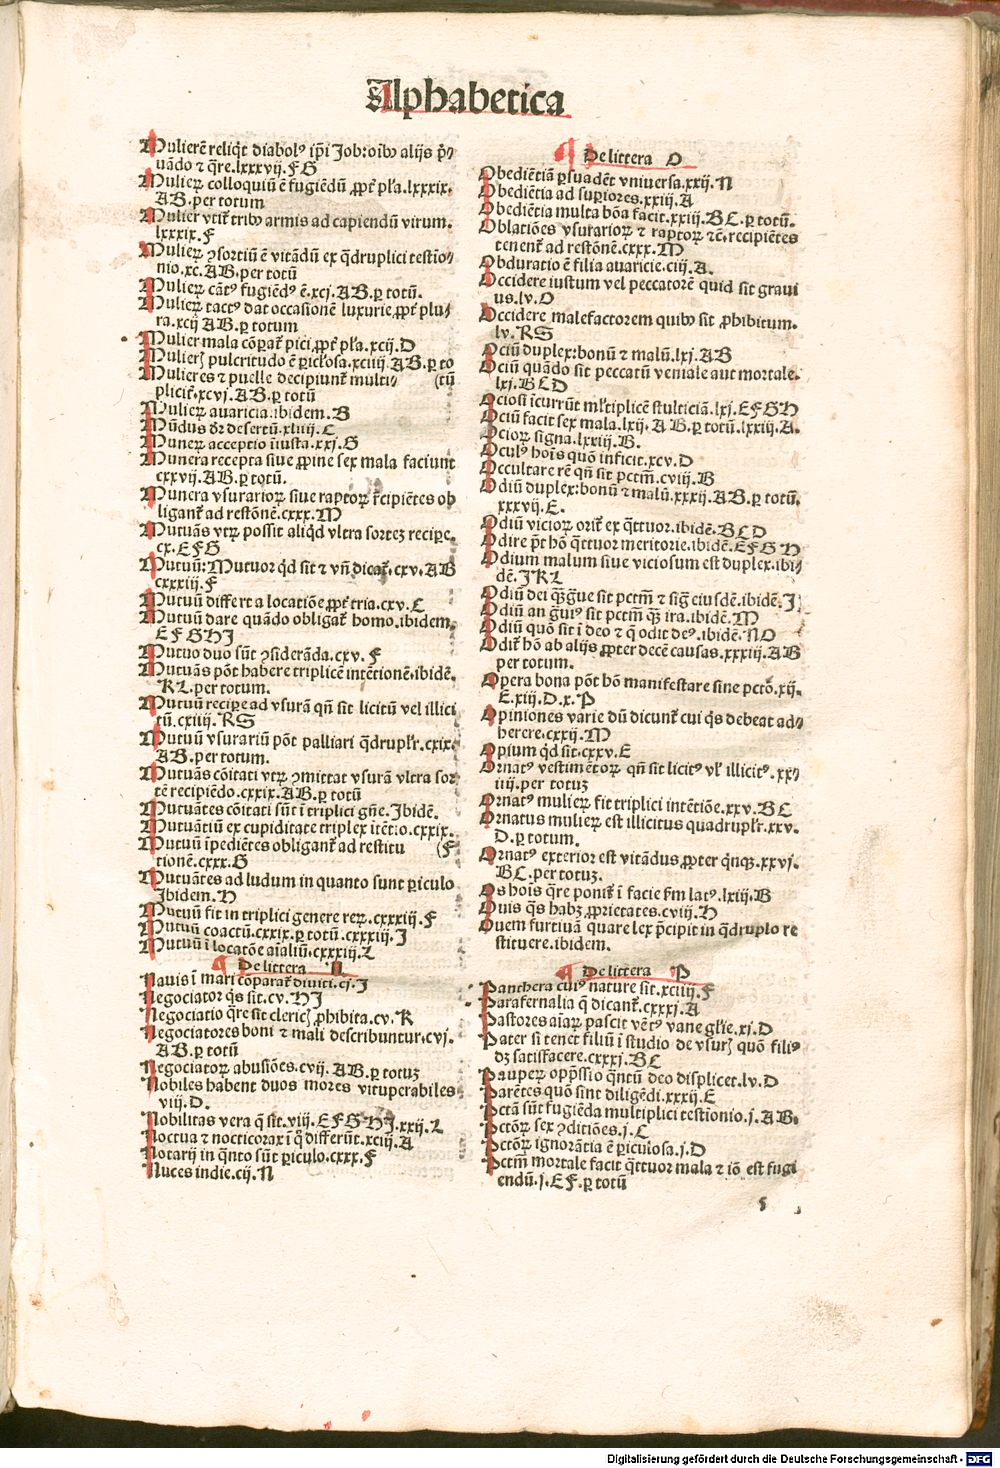 Alphabetica
Mulierē reliq̄t diabolꝰ ip̄i Job: oībꝰ alijs p̄-
uādo ⁊ q̄re. lxxxvij. F G
Mulieꝝ colloquiū ē fugiēdū ꝓpt̄ pl̄a. lxxxix.
A B. per totum
Mulier vtit̄ tribꝰ armis ad capiendū virum.
lxxxix. F
Mulieꝝ ꝯsortiū ē vitādū ex q̄druplici testio-
nio. xc. A B. per totū
Mulieꝝ cātꝰ fugiēdꝰ ē. xcj. A B. ꝑ totū.
Mulieꝝ tactꝰ dat occasionē luxurie ꝓpt̄ plu-
ra. xcij A B. ꝑ totum
Mulier mala cōparat̄ pici ꝓpt̄ pl̄a. xcij. D
Mulieꝝ pulcritudo ē ꝑiclosa. xciiij A B. ꝑ to
Mulieres ⁊ puelle decipiunt̄ multi- (tū
plicit̄. xcvj. A B. ꝑ totū
Mulieꝝ auaricia. ibidem. B
Mūdus dr̄ desertū. xliiij. C
Muneꝝ acceptio iniusta. xxj. G
Munera recepta siue ꝓpine sex mala faciunt
cxxvij. A B. ꝑ totū.
Munera vsurarioꝝ siue raptoꝝ r̄cipiētes ob
ligant̄ ad restōnē. cxxx. M
Mutuās vtꝝ possit aliq̄d vltra sortez recipe.
cx. E F G
Mutuū: Mutuor q̄d sit ⁊ vn̄ dicat̄. cxv. A B
cxxxiij. F
Mutuū differt a locatiōe ꝓpt̄ tria. cxv. C
Mutuū dare quādo obligat̄ homo. ibidem.
E F G H J
Mutuo duo sūt ꝯsiderāda. cxv. F
Mutuās pōt habere triplicē intētionē. ibidē.
K L. per totum.
Mutuū recipe ad vsurā qn̄ sit licitū vel illici
tū. cxiiij. R S
Mutuū vsurariū pōt palliari q̄drupl̄r. cxix.
A B. per totum.
Mutuās cōitati vtꝝ ꝯmittat vsurā vltra sor
tē recipiēdo. cxxix. A B. ꝑ totū
Mutuātes cōitati sūt ī triplici gn̄e. Ibidē.
Mutuātiū ex cupiditate triplex itētio. cxxix.
Mutuū īpediētes obligant̄ ad restitu (F
tionē. cxxx. G
Mutuātes ad ludum in quanto sunt ꝑiculo
Ibidem. H
Mutuū fit in triplici genere reꝝ. cxxxiij. F
Mutuū coactū. cxxix. ꝑ totū. cxxxiij. J
Mutuū ī locatōe aīaliū. cxxxiij. L
De littera N
Nauis ī mari cōparat̄ diuiti. cj. J
Negociator q̄s sit. cv. H J
Negociatio q̄re sit clericꝭ ꝓhibita. cv. K
Negociatores boni ⁊ mali describuntur. cvj.
A B. ꝑ totū
Negociatoꝝ abusiōes. cvij. A B. ꝑ totuz
Nobiles habent duos mores vituperabiles
viij. D.
Nobilitas vera q̄ sit. viij. E F G H J. xxij. L
Noctua ⁊ nocticorax ī q̄ differūt. xciij. A
Notarij in q̄nto sūt ꝑiculo. cxxx. F
Nuces indie. cij. N
De littera O
Obediētiā ꝑsuadēt vniuersa. xxij. N
Obediētia ad suꝑiores. xxiij. A
Obediētia multa bōa facit. xxiij. B C. ꝑ totū.
Oblatiōes vsurarioꝝ ⁊ raptoꝝ ⁊c̄. recipiētes
tenent̄ ad restōnē. cxxx. M
Obduratio ē filia auaricie. ciij. A.
Occidere iustum vel peccatorē quid sit graui
us. lv. O
Occidere malefactorem quibꝰ sit ꝓhibitum.
lv. R S
Ociū duplex: bonū ⁊ malū. lxj. A B
Ociū quādo sit peccatū veniale aut mortale.
lxj. B C D
Ociosi īcurrūt ml̄tiplicē stulticiā. lxj. E F G H
Ociū facit sex mala. lxij. A B. ꝑ totū. lxxiij. A.
Ocioꝝ signa. lxxiij. B.
Oculꝰ hoīs quō inficit. xcv. D
Occultare rē qn̄ sit pctm̄. cviij. B
Odiū duplex: bonū ⁊ malū. xxxij. A B. ꝑ totū.
xxxvij. E.
Odiū vicioꝝ orit̄ ex q̄ttuor. ibidē. B C D
Odire pōt hō q̄ttuor meritorie. ibidē. E F G H
Odium malum siue viciosum est duplex. ibi-
dē. J K L
Odiū dei q̄ȝgrue sit pctm̄ ⁊ sig̅ eiusdē. ibidē. J
Odiū an g̅uiꝰ sit pctm̄ q̄ȝ ira. ibidē. M
Odiū quō sit ī deo ⁊ q̄ odit deꝰ. ibidē. N O
Odit̄ hō ab alijs ꝓpter decē causas. xxxiij. A B
per totum.
Opera bona pōt hō manifestare sine pctō. xij.
E. xiij. D. x. P
Opiniones varie dū dicunt̄ cui q̄s debeat ad-
herere. cxxij. M
Opium q̄d sit. cxxv. E
Ornatꝰ vestimētoꝝ qn̄ sit licitꝰ vl̓ illicitꝰ. xx-
iiij. per totuz
Ornatꝰ mulieꝝ fit triplici intētiōe. xxv. B C
Ornatus mulieꝝ est illicitus quadrupl̄r. xxv.
D. ꝑ totum.
Ornatꝰ exterior est vitādus ꝓpter q̄nqꝫ. xxvj.
B C. per totuz.
Os hoīs q̄re ponit̄ ī facie ẜm latꝰ. lxiij. B
Ouis q̄s habꝫ ꝓprietates. cviij. H
Ouem furtiuā quare lex p̄cipit in q̄druplo re
stituere. ibidem.
De littera P
Panthera cuiꝰ nature sit. xciiij. F
Parafernalia q̄ dicant̄. cxxxj. A
Pastores aīaꝝ pascit vētꝰ vane gl̄ie. xj. D
Pater si tenet filiū ī studio de vsurꝭ quō filiꝰ
dꝫ satisfacere. cxxxj. B C
Pauperꝝ opp̄ssio q̄ntū deo displicet. lv. D
Parētes quō sint diligēdi. xxxij. E
Pctā sūt fugiēda multiplici testionio. j. A B.
Pctōꝝ sex ꝯditiōes. j. C
Pctōꝝ ignorātia ē ꝑiculosa. j. D
Pctm̄ mortale facit q̄ttuor mala ⁊ iō est fugi
endū. j. E F. ꝑ totū
5
Digitalisierung gefördert durch die Deutsche Forschungsgemeinschaft - DFG